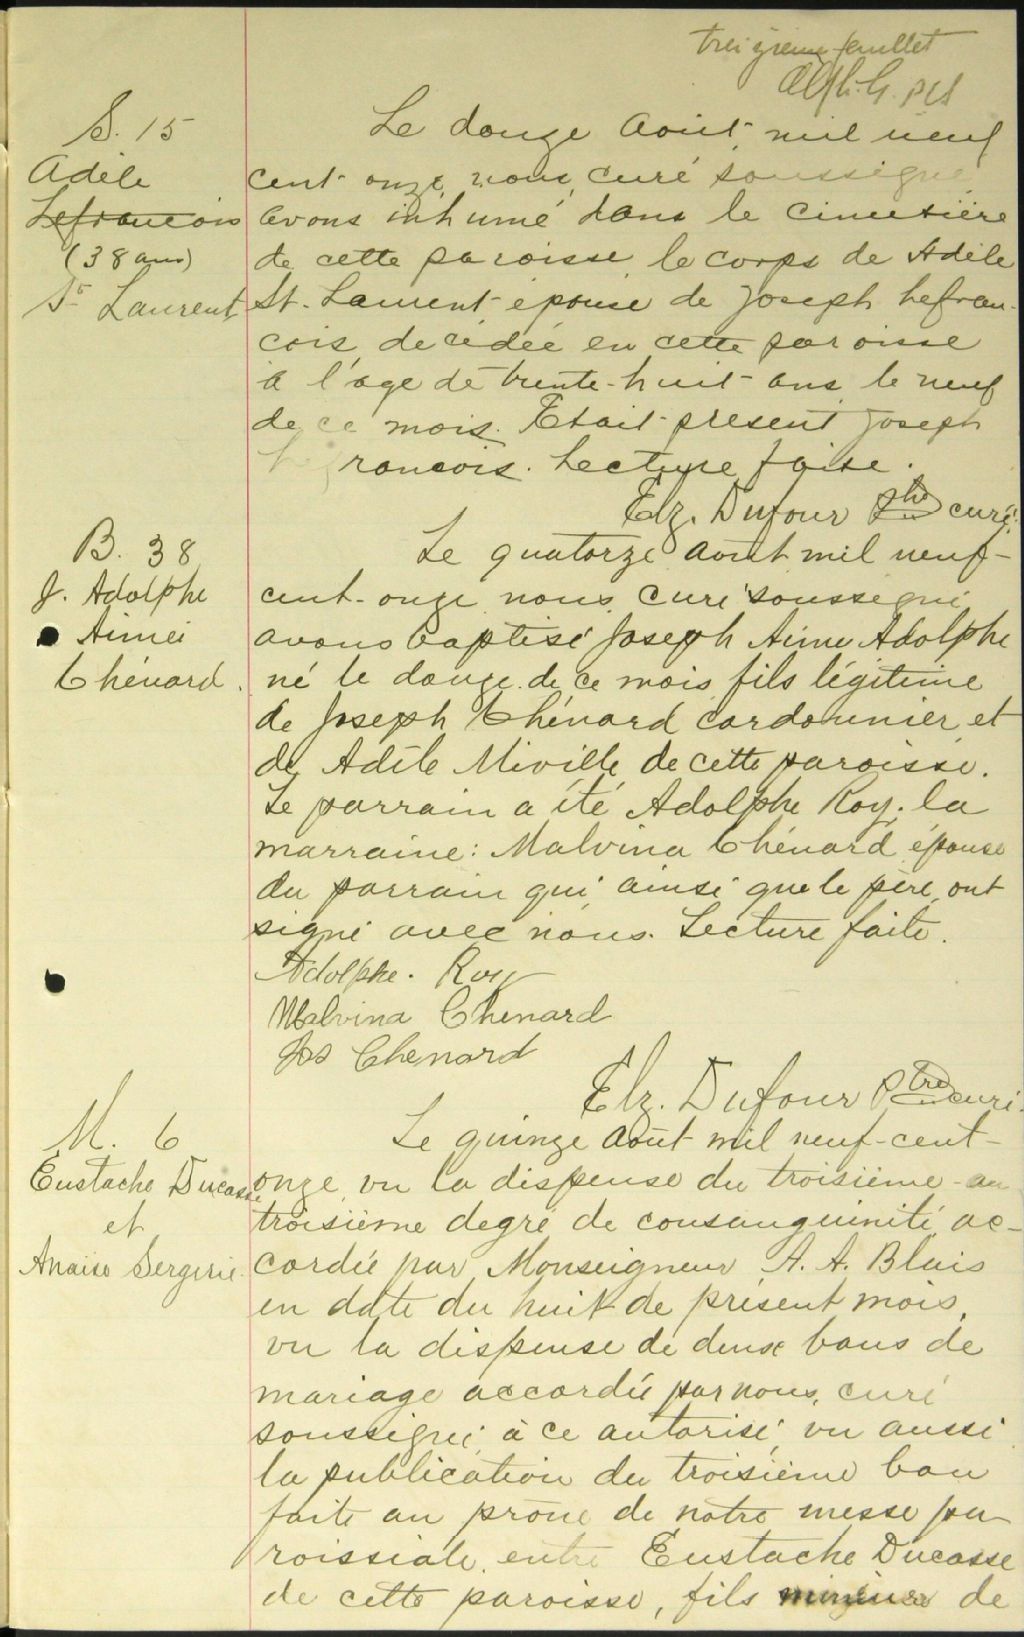 treizième feuillet
S. 15
Adèle
Lefrancois
(38 ans)
St Laurent
Le douze Août, mil neuf
cent onze, nous, curé soussigné
avons inhumé dans le cimetière
de cette paroisse le corps de Adèle
St. Laurent épouse de Joseph Lefran-
cois, decédée en cette paroisse
à l'age de trente-huit ans le neuf
de ce mois. Etait present Joseph
Lefrancois. Lecture faite.
Elz. Dufour Ptre curé
B. 38
J. Adolphe
Aimé
Chénard.
Le quatorze Août mil neuf-
cent-onze nous, curé soussigné
avons baptisé Joseph Aimé Adolphe
né le douze de ce mois, fils légitime
de Joseph Chénard cordonnier et
de Adèle Miville de cette paroisse.
Le parrain a été Adolphe Roy, la
marraine: Malvina Chénard épouse
du parrain qui ainsi que le père ont
signé avec nous. Lecture faite.
Adolphe. Roy
Malvina Chenard
Jos Chenard
Elz. Dufour Ptre curé.
M. 6
Eustache Ducasse
et
Anaïse Sergerie.
Le quinze Août mil neuf-cent-
onze, vu la dispense du troisième au
troisième degré de consanguinité, ac-
cordée par Monseigneur A. A. Blais
en date du huit de présent mois,
vu la dispense de deux bans de
mariage accordée par nous, curé
soussigné, à ce autorisé, vu aussi
la publication du troisième ban
faite au prône de notre messe pa-
roissiale, entre Eustache Ducasse
de cette paroisse, fils mineur de